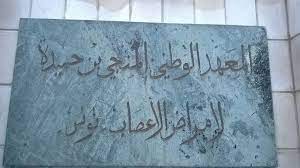 المعهد الوطني المنجي بن حميدة
لأمراض الأعصاب . تونس